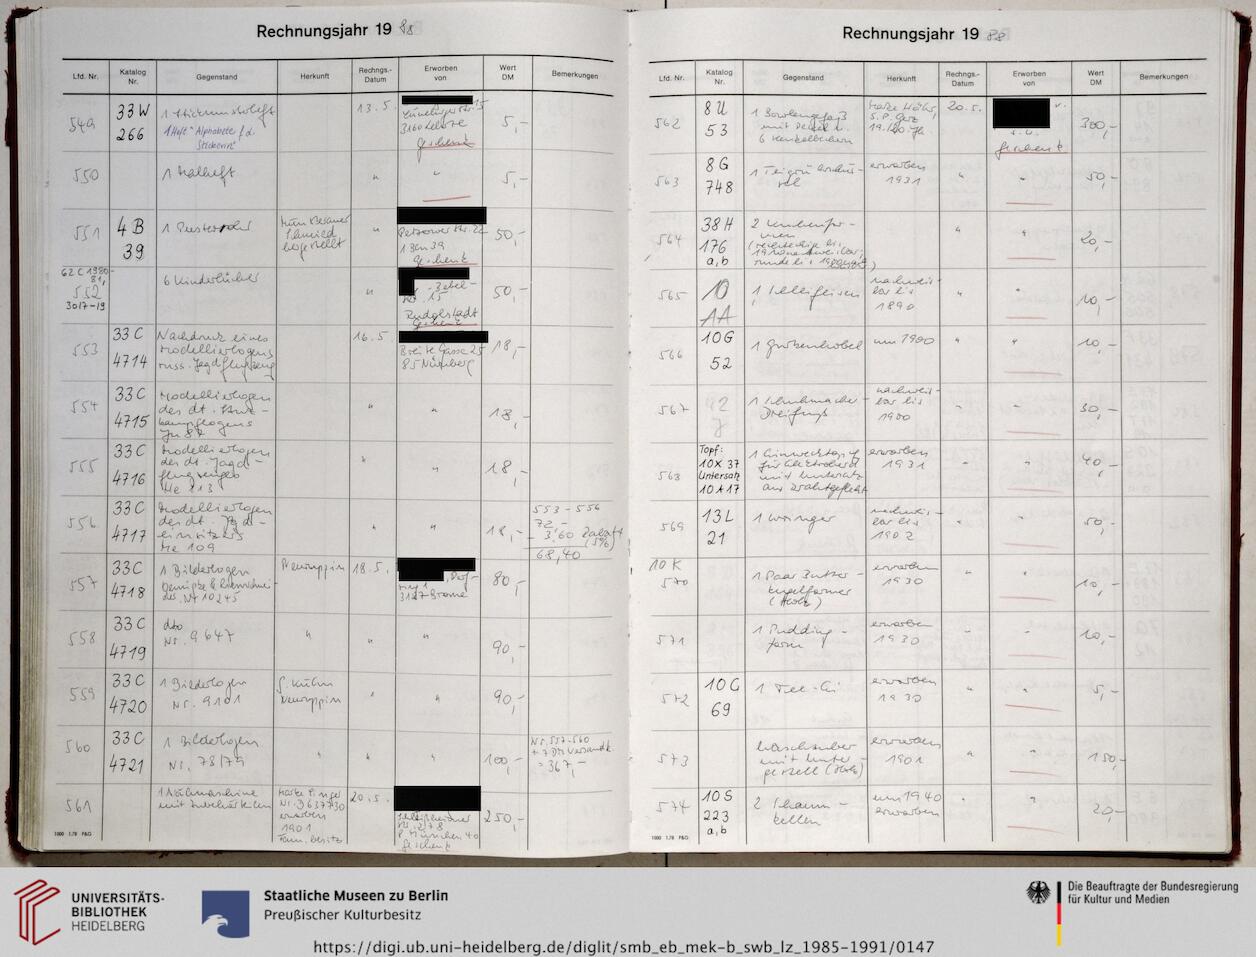 Rechnungsjahr 19 88
Lfd. Nr. Katalog Nr. Gegenstand Herkunft Rechngs.-Datum Erworben von Wert DM Bemerkungen
549 33 W 266 1 Stickmusterheft 13.5. 5,-
1 Heft "Alphabete f. d. Stickerin"
3160 Lehrte
Geschenk
550 1 Malheft " " 5,-
551 4 B 39 1 Pusterohr " 50,-
hergestellt
1 Bln 39
Geschenk
62 C 1980-81,
552 6 Kinderbücher " 50,-
3017-19
Rudolstadt
Geschenk
553 33 C 4714 Nachdruck eines 16.5. 18,-
Modellierbogens
russ. Jagdflugzeug
Breite Gasse 25
85 Nürnberg
554 33 C 4715 Modellierbogen " " 18,-
des dt. Sturz-
kampfbogens
Ju 87
555 33 C 4716 Modellierbogen " " 18,-
des dt. Jagd-
flugzeuges
Me 113
556 33 C 4717 Modellierbogen " " 18,-
des dt. Jagd-
einsitzers
Me 109
553 - 556
72,-
- 3,60 Rabatt (5%)
68,40
557 33 C 4718 1 Bilderbogen Neuruppin 18.5. 80,-
Nr 10245
3127 Brome
558 33 C 4719 dto " " 90,-
Nr. 9647
559 33 C 4720 1 Bilderbogen G. Kühn Neuruppin " " 90,-
Nr. 9101
560 33 C 4721 1 Bilderbogen " " " 100,-
Nr. 78/79
Nr. 557-560
+ 7 DM Versandk.
= 367,-
561 1 Nähmaschine Marke Singer 20.5. 250,-
Nr. 3637730
erworben
1901
Fam. besitz
München 40
Geschenk
1000 1.78 P&G
Rechnungsjahr 19 88
Lfd. Nr. Katalog Nr. Gegenstand Herkunft Rechngs.-Datum Erworben von Wert DM Bemerkungen
562 8 U 53 1 Bowlengefäß 20.5. v. 300,-
mit Deckel u.
6 Henkelbechern
19./20. Jh.
s. o.
Geschenk
563 8 G 748 erworben 1931 " " 50,-
564 38 H 176 a, b 2 Kuchenfor- " " 20,-
men
565 10 AA 1 nachweis- bar bis 1890 " " 10,-
566 10 G 52 1 Gurkenhobel um 1900 " " 10,-
567 1 Schuhmacher- nachweis- bar bis 1900 " " 30,-
Dreifuß
568 Topf: 10 X 37 Untersatz 10 A 17 1 Einwecktopf erworben 1931 " " 40,-
für Elektroherd
mit Untersatz
aus Drahtgeflecht
569 13 L 21 1 Wringer nachweis- bar bis 1902 " " 50,-
570 10 K 1 Paar Butter- erworben 1930 " " 10,-
kugelformer
(Holz)
571 1 Pudding- erworben 1930 " " 10,-
form
572 10 G 69 1 Tee-Ei erworben 1930 " " 5,-
573 Waschzuber erworben 1901 " " 150,-
mit Unter-
gestell (Holz)
574 10 S 223 a, b 2 Schaum- um 1940 erworben " " 20,-
kellen
1000 1.78 P&G
UNIVERSITÄTS-
BIBLIOTHEK
HEIDELBERG
Staatliche Museen zu Berlin
Preußischer Kulturbesitz
Die Beauftragte der Bundesregierung
für Kultur und Medien
https://digi.ub.uni-heidelberg.de/diglit/smb_eb_mek-b_swb_lz_1985-1991/0147